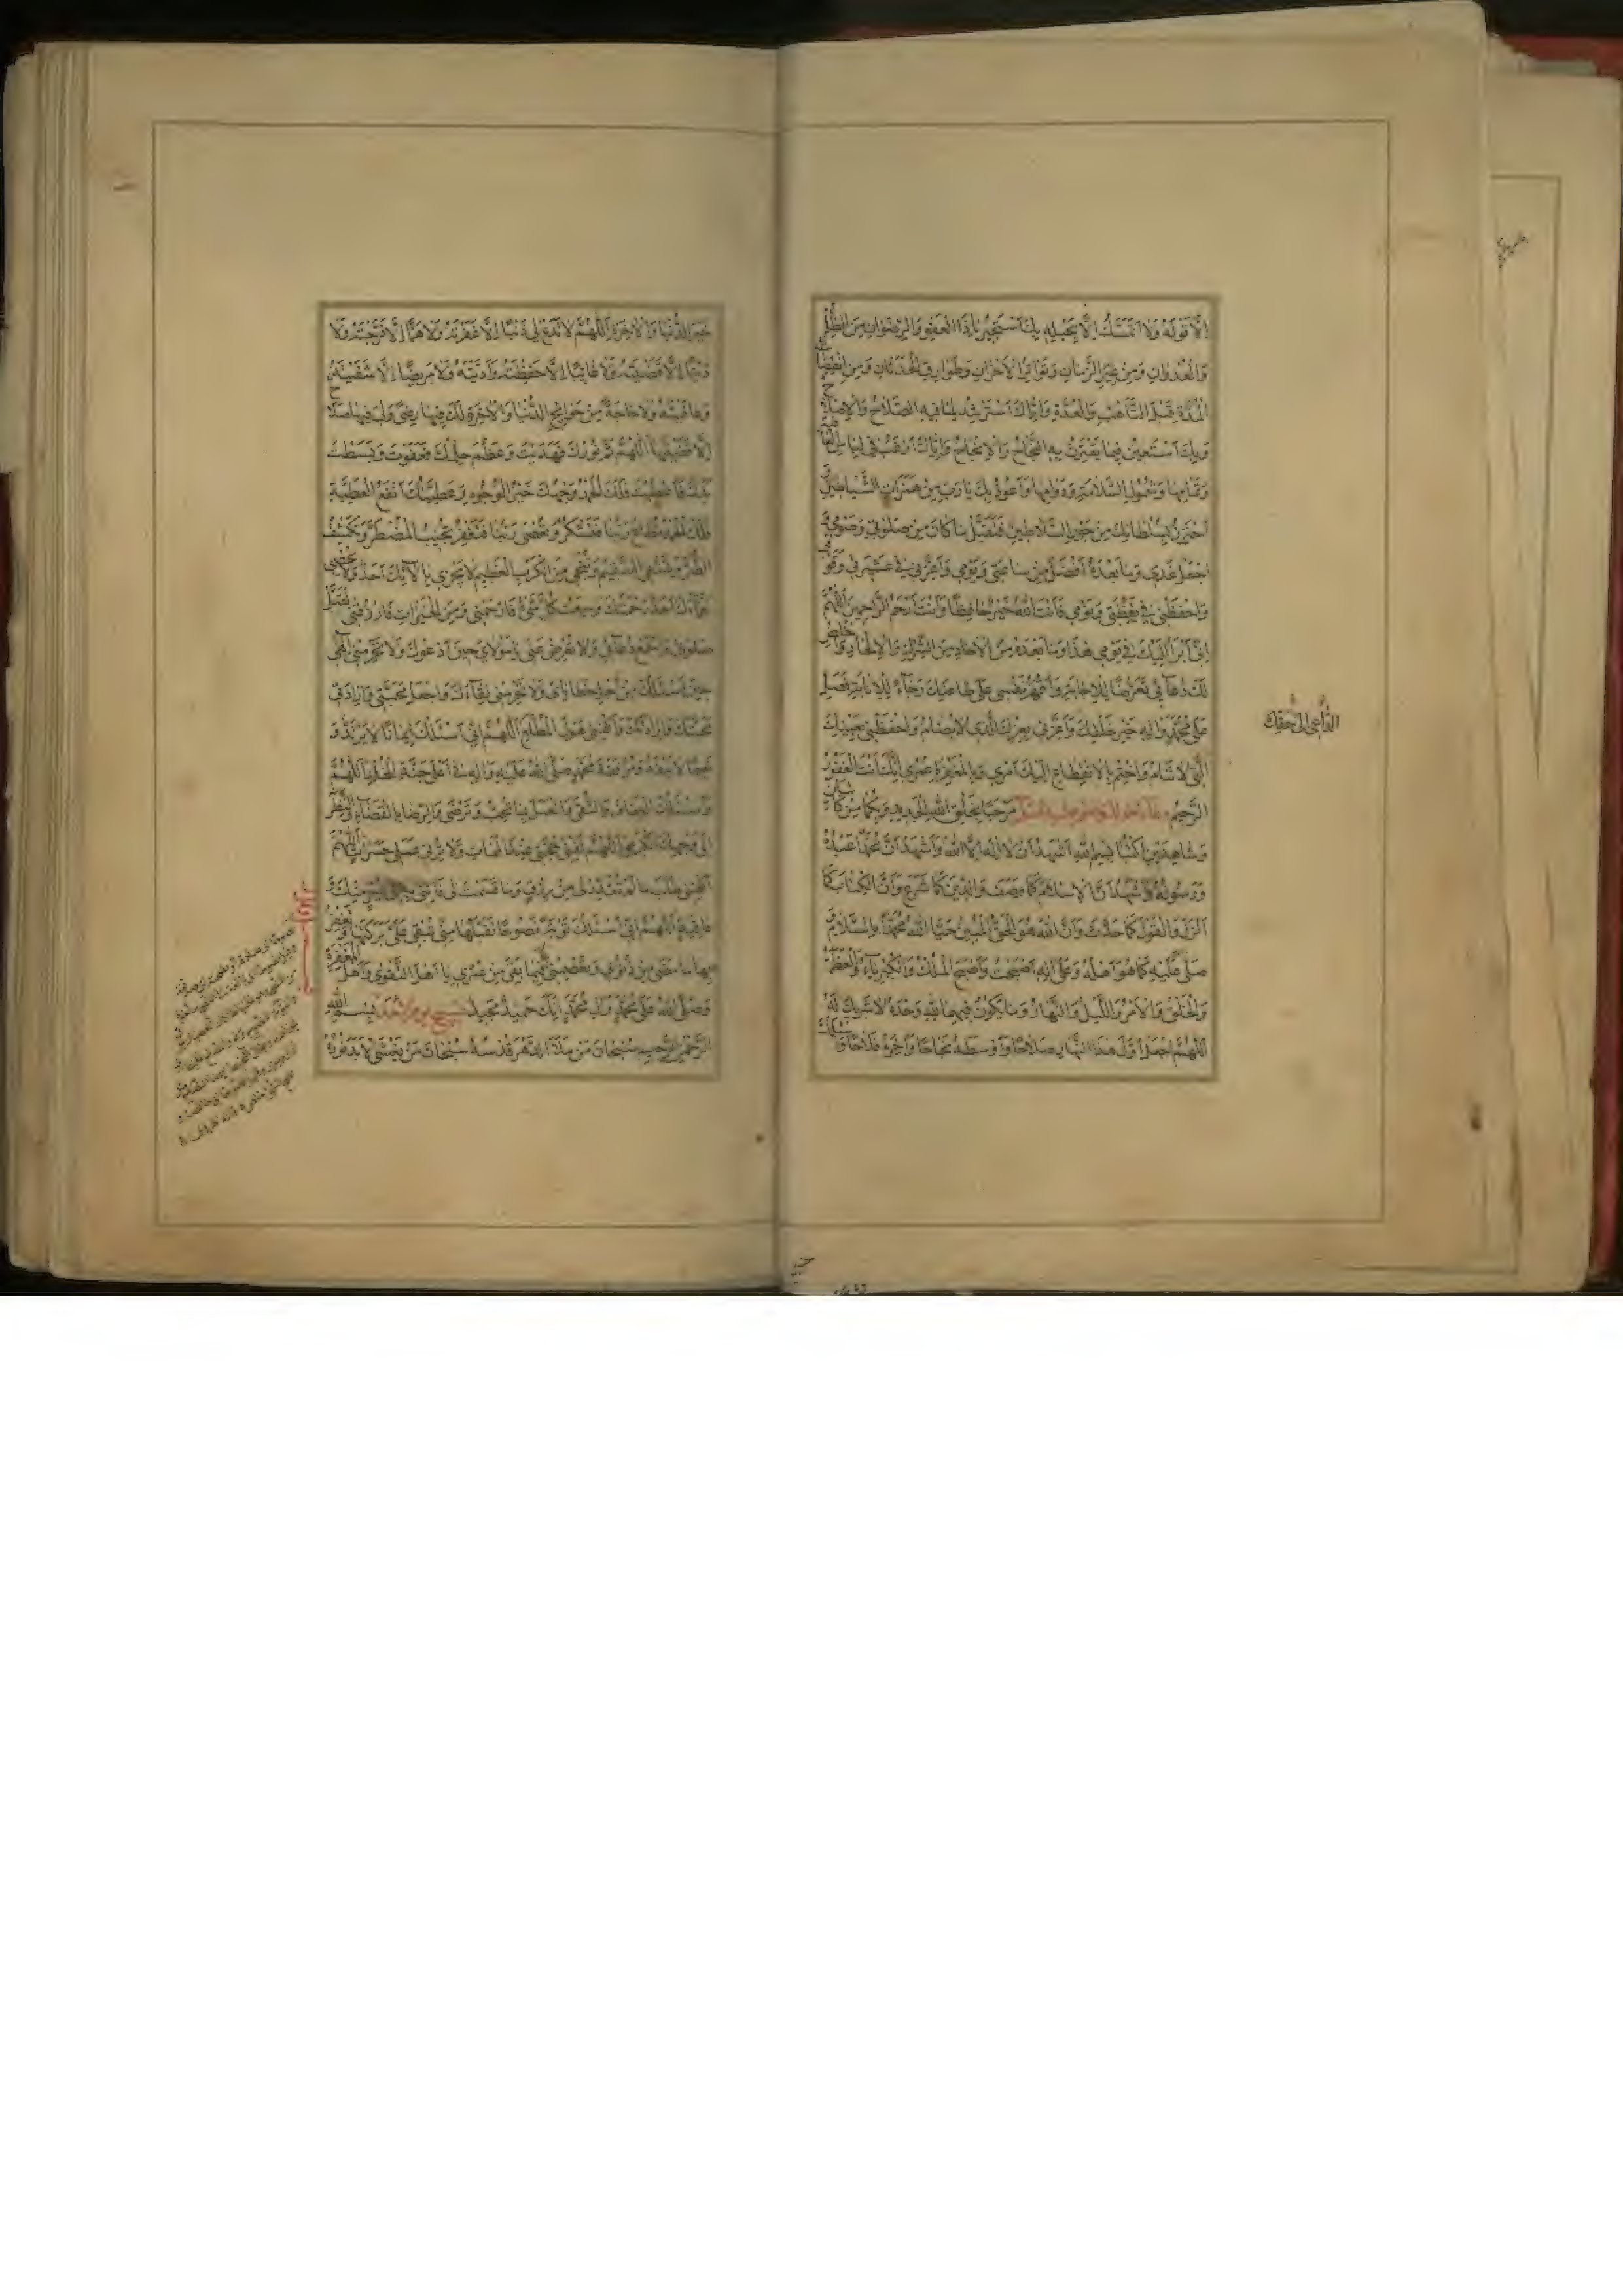 اِلَّا قَوْلَهُ وَلَا اُمْسِكُ اِلَّا بِحَبْلِهِ بِكَ اَسْتَجيرُ يا ذَا الْعَفْوِ وَالرِّضْوانِ مِنَ الظُّلْمِ
وَالْعُدْوانِ وَمِنْ غِيَرِ الزَّمانِ وَتَواتُرِ الْاَحْزانِ وَطَوارِقِ الْحَدَثانِ وَمِنِ انْقِضاءِ
الْمُدَّةِ قَبْلَ التَّاَهُّبِ وَالْعُدَّةِ وَاِيَّاكَ اَسْتَرْشِدُ لِما فيهِ الصَّلاحُ وَالْاِصْلاحُ
وَبِكَ اَسْتَعينُ فيما يَقْتَرِنُ بِهِ النَّجاحُ وَالْاِنْجاحُ وَاِيَّاكَ اَرْغَبُ في لِباسِ الْعافِيَةِ
وَتَمامِها وَشُمُولِ السَّلامَةِ وَدَوامِها وَاَعُوذُ بِكَ يا رَبِّ مِنْ هَمَزاتِ الشَّياطينِ وَ
اَحْتَرِزُ بِسُلْطانِكَ مِنْ جَوْرِ السَّلاطينِ فَتَقَبَّلْ ما كانَ مِنْ صَلٰوتي وَصَوْمي وَ
اجْعَلْ غَدي وَما بَعْدَهُ اَفْضَلَ مِنْ ساعَتي وَيَوْمي وَاَعِزَّني في عَشيرَتي وَقَوْمي
وَاحْفَظْني في يَقْظَتي وَنَوْمي فَاَنْتَ اللّٰهُ خَيْرٌ حافِظًا وَاَنْتَ اَرْحَمُ الرَّاحِمينَ اَللّٰهُمَّ
اِنّي اَبْرَاُ اِلَيْكَ في يَوْمي هٰذا وَما بَعْدَهُ مِنَ الْآحادِ مِنَ الشِّرْكِ وَالْاِلْحادِ وَاُخْلِصُ
لَكَ دُعائي تَعَرُّضًا لِلْاِجابَةِ وَاَقْهَرُ نَفْسي عَلٰى طاعَتِكَ رَجاءً لِلْاِثابَةِ فَصَلِّ
عَلٰى مُحَمَّدٍ وَاٰلِهِ خَيْرِ خَلْقِكَ وَاَعِزَّني بِعِزِّكَ الَّذي لا يُضامُ وَاحْفَظْني بِعَيْنِكَ
الَّتي لا تَنامُ وَاخْتِمْ بِالْاِنْقِطاعِ اِلَيْكَ اَمْري وَبِالْمَغْفِرَةِ عُمْري اِنَّكَ اَنْتَ الْغَفُورُ
الرَّحيمُ مَرْحَبًا بِخَلْقِ اللّٰهِ الْجَديدِ وَبِكُما مِنْ كاتِبَيْنِ
وَشاهِدَيْنِ اُكْتُبا بِسْمِ اللّٰهِ اَشْهَدُ اَنْ لا اِلٰهَ اِلَّا اللّٰهُ وَاَشْهَدُ اَنَّ مُحَمَّدًا عَبْدُهُ
وَرَسُولُهُ وَاَشْهَدُ اَنَّ الْاِسْلامَ كَما وَصَفَ وَالدّينَ كَما شَرَعَ وَاَنَّ الْكِتابَ كَما
اَنْزَلَ وَالْقَوْلَ كَما حَدَّثَ وَاَنَّ اللّٰهَ هُوَ الْحَقُّ الْمُبينُ حَيَّا اللّٰهُ مُحَمَّدًا بِالسَّلامِ وَ
صَلّٰى عَلَيْهِ كَما هُوَ اَهْلُهُ وَعَلٰى اٰلِهِ اَصْبَحْتُ وَاَصْبَحَ الْمُلْكُ وَالْكِبْرِياءُ وَالْعَظَمَةُ
وَالْخَلْقُ وَالْاَمْرُ وَاللَّيْلُ وَالنَّهارُ وَما يَكُونُ فيهِما لِلّٰهِ وَحْدَهُ لا شَريكَ لَهُ
اَللّٰهُمَّ اجْعَلْ اَوَّلَ هٰذَا النَّهارِ صَلاحًا وَاَوْسَطَهُ نَجاحًا وَاٰخِرَهُ فَلاحًا وَاَسْئَلُكَ
خَيْرَ الدُّنْيا وَالْاٰخِرَةِ اَللّٰهُمَّ لا تَدَعْ لي ذَنْبًا اِلَّا غَفَرْتَهُ وَلا هَمًّا اِلَّا فَرَّجْتَهُ وَلا
دَيْنًا اِلَّا قَضَيْتَهُ وَلا غائِبًا اِلَّا حَفِظْتَهُ وَاَدَّيْتَهُ وَلا مَريضًا اِلَّا شَفَيْتَهُ
وَعافَيْتَهُ وَلا حاجَةً مِنْ حَوائِجِ الدُّنْيا وَالْاٰخِرَةِ لَكَ فيها رِضًى وَلي فيها صَلاحٌ
اِلَّا قَضَيْتَها اَللّٰهُمَّ تَمَّ نُورُكَ فَهَدَيْتَ وَعَظُمَ حِلْمُكَ فَعَفَوْتَ وَبَسَطْتَ
يَدَكَ فَاَعْطَيْتَ فَلَكَ الْحَمْدُ وَجْهُكَ خَيْرُ الْوُجُوهِ وَعَطِيَّتُكَ اَنْفَعُ الْعَطِيَّةِ
فَلَكَ الْحَمْدُ تُطاعُ رَبَّنا فَتَشْكُرُ وَتُعْصٰى رَبَّنا فَتَغْفِرُ تُجيبُ الْمُضْطَرَّ وَتَكْشِفُ
الضُّرَّ وَتَشْفِي السَّقيمَ وَتُنْجي مِنَ الْكَرْبِ الْعَظيمِ لا يَجْزي بِاٰلائِكَ اَحَدٌ وَلا يُحْصي
نَعْماءَكَ اَحَدٌ رَحْمَتُكَ وَسِعَتْ كُلَّ شَيْءٍ فَارْحَمْني وَمِنَ الْخَيْراتِ فَارْزُقْني تَقَبَّلْ
صَلٰوتي وَاسْمَعْ دُعائي وَلا تُعْرِضْ عَنّي يا مَوْلايَ حينَ اَدْعُوكَ وَلا تَحْرِمْني اِلٰهي
حينَ اَسْئَلُكَ مِنْ اَجْلِ خَطايايَ وَلا تَحْرِمْني لِقاءَكَ وَاجْعَلْ مَحَبَّتي وَاِرادَتي
مَحَبَّتَكَ وَاِرادَتَكَ وَاكْفِني هَوْلَ الْمُطَّلَعِ اَللّٰهُمَّ اِنّي اَسْئَلُكَ ايمانًا لا يَرْتَدُّ وَ
نَعيمًا لا يَنْفَدُ وَمُرافَقَةَ مُحَمَّدٍ صَلَّى اللّٰهُ عَلَيْهِ وَاٰلِهِ في اَعْلٰى جَنَّةِ الْخُلْدِ اَللّٰهُمَّ
وَاَسْئَلُكَ الْعَفافَ وَالتُّقٰى وَالْعَمَلَ بِما تُحِبُّ وَتَرْضٰى وَالرِّضا بِالْقَضاءِ وَالنَّظَرَ
اِلٰى وَجْهِكَ الْكَريمِ اَللّٰهُمَّ لَقِّني حُجَّتي عِنْدَ الْمَماتِ وَلا تُرِني عَمَلي حَسَراتٍ اَللّٰهُمَّ
اكْفِني طَلَبَ ما لَمْ تُقَدِّرْ لي مِنْ رِزْقٍ وَما قَسَمْتَ لي فَأْتِني بِهِ في يُسْرٍ مِنْكَ وَ
عافِيَةٍ اَللّٰهُمَّ اِنّي اَسْئَلُكَ تَوْبَةً نَصُوحًا تَقْبَلُها مِنّي تُبْقي عَلَيَّ بَرَكَتَها وَتَغْفِرُ
بِها ما مَضٰى مِنْ ذُنُوبي وَتَعْصِمُني بِها فيما بَقِيَ مِنْ عُمْري يا اَهْلَ التَّقْوٰى وَاَهْلَ الْمَغْفِرَةِ
وَصَلَّى اللّٰهُ عَلٰى مُحَمَّدٍ وَاٰلِ مُحَمَّدٍ اِنَّكَ حَميدٌ مَجيدٌ تسبيح يوم الاحد بِسْمِ اللّٰهِ
الرَّحْمٰنِ الرَّحيمِ سُبْحانَ مَنْ مَلَاَ الدَّهْرَ قُدْسُهُ سُبْحانَ مَنْ يَغْشَى الْاَبَدَ نُورُهُ
الدَّاعي اِلٰى حَقِّكَ